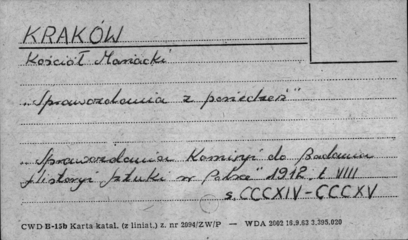 KRAKÓW
Kościół Mariacki
„Sprawozdania z posiedzeń"
„Sprawozdania Komisyi do Badania
Historyi Sztuki w Polsce" 1912 t. VIII
s. CCCXIV-CCCXV
CWD H-15b Karta katal. (z liniat.) z. nr 2094/ZW/P — WDA 2002 18.9.62 3.395.020